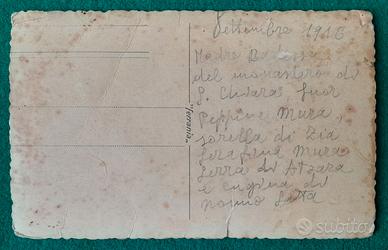 Settembre 1916
Madre Badessa
del monastero di
S. Chiara Suor
Peppina Mura,
sorella di Zia
Serafina Mura
Serra di Atzara
e cugina di
nonno
"Ferrania"
subito